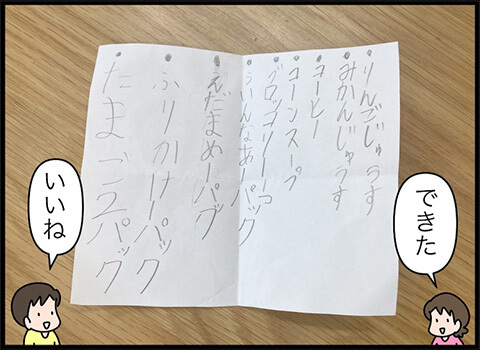 ・りんごじゅうす
・みかんじゅうす
・コーヒー
・コーンスープ
・ブロッコリー一つ
・ういんなあ一パック
・えだまめ一パック
・ふりかけ一パック
・たまご2パック
できた
いいね